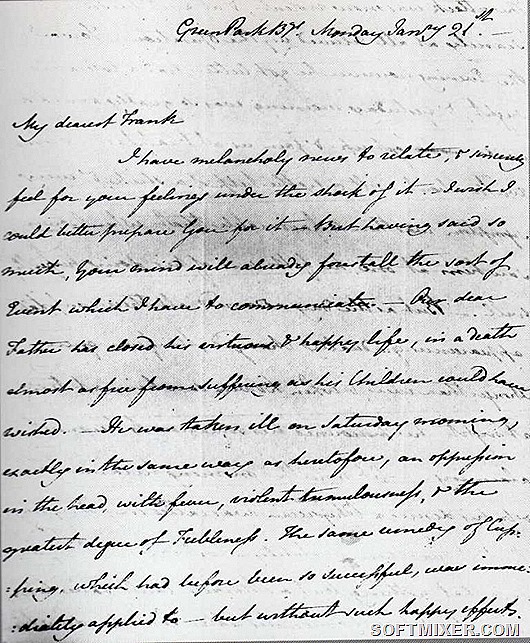 Green Park Bgs. Monday Janry 21st.
My dearest Frank
I have melancholy news to relate, & sincerely
feel for your feelings under the shock of it. - I wish I
could better prepare You for it. - But having said so
much, Your mind will already forestall the sort of
Event which I have to communicate. - Our dear
Father has closed his virtuous & happy life, in a death
almost as free from suffering as his Children could have
wished. - He was taken ill on Saturday morning,
exactly in the same way as heretofore, an oppression
in the head, with fever, violent tremulousness, & the
greatest degree of Feebleness. The same remedy of Cup-
:ping, which had before been so successful, was imme-
:diately applied to - but without such happy effects
SOFTMIXER.COM